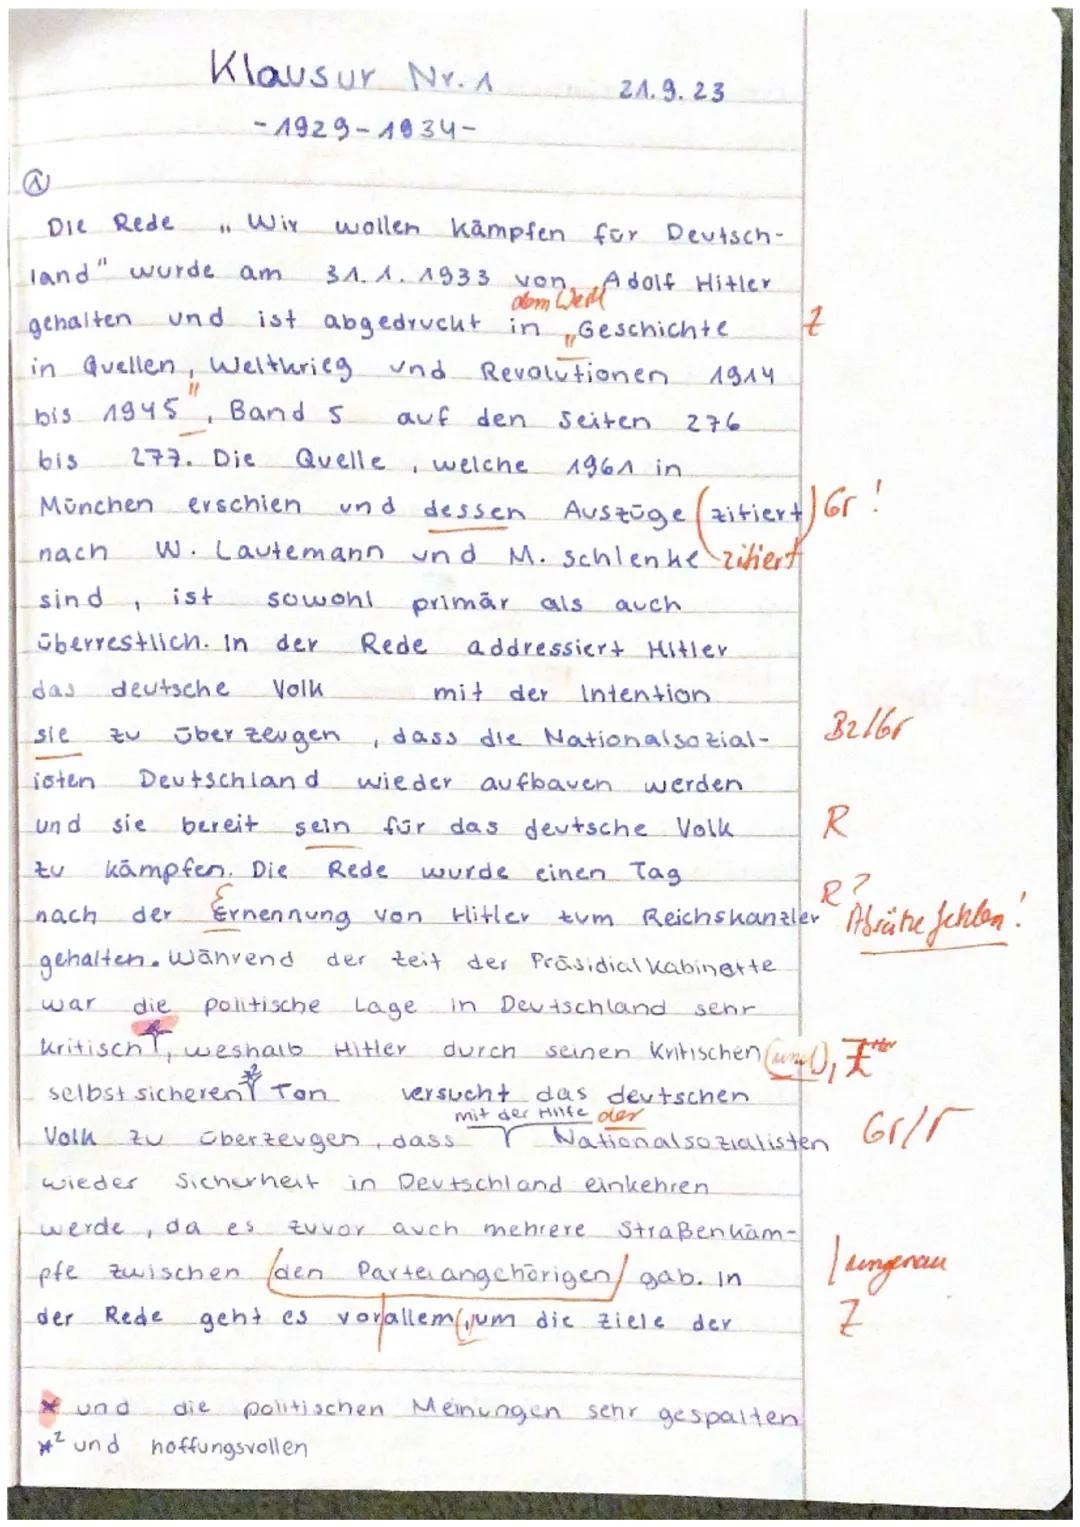 Klausur Nr. 1 21.9.23
- 1929-1934 -
①
Die Rede „Wir wollen kämpfen für Deutsch-
land" wurde am 31.1.1933 von Adolf Hitler
dem Werk
gehalten und ist abgedruckt in „Geschichte Z
in Quellen, Weltkrieg und Revolutionen 1914
bis 1945", Band 5 auf den Seiten 276
bis 277. Die Quelle, welche 1961 in
München erschien und dessen Auszüge (zitiert) Gr!
nach W. Lautemann und M. Schlenke zitiert
sind, ist sowohl primär als auch
überrestlich. In der Rede addressiert Hitler
das deutsche Volk mit der Intention
sie zu überzeugen, dass die Nationalsozial- Bz/Gr
isten Deutschland wieder aufbauen werden
und sie bereit sein für das deutsche Volk R
zu kämpfen. Die Rede wurde einen Tag
nach der Ernennung von Hitler zum Reichskanzler R? Absätze fehlen!
gehalten. Während der Zeit der Präsidialkabinette
war die politische Lage in Deutschland sehr
kritisch*, weshalb Hitler durch seinen kritischen (und), Z
selbstsicheren*² Ton versucht das deutschen
mit der Hilfe der
Volk zu überzeugen, dass Nationalsozialisten Gr/r
wieder Sicherheit in Deutschland einkehren
werde, da es zuvor auch mehrere Straßenkäm-
pfe zwischen (den Parteiangehörigen) gab. In ungenau
der Rede geht es vorallem, um die Ziele der Z
* und die politischen Meinungen sehr gespalten
*² und hoffungsvollen